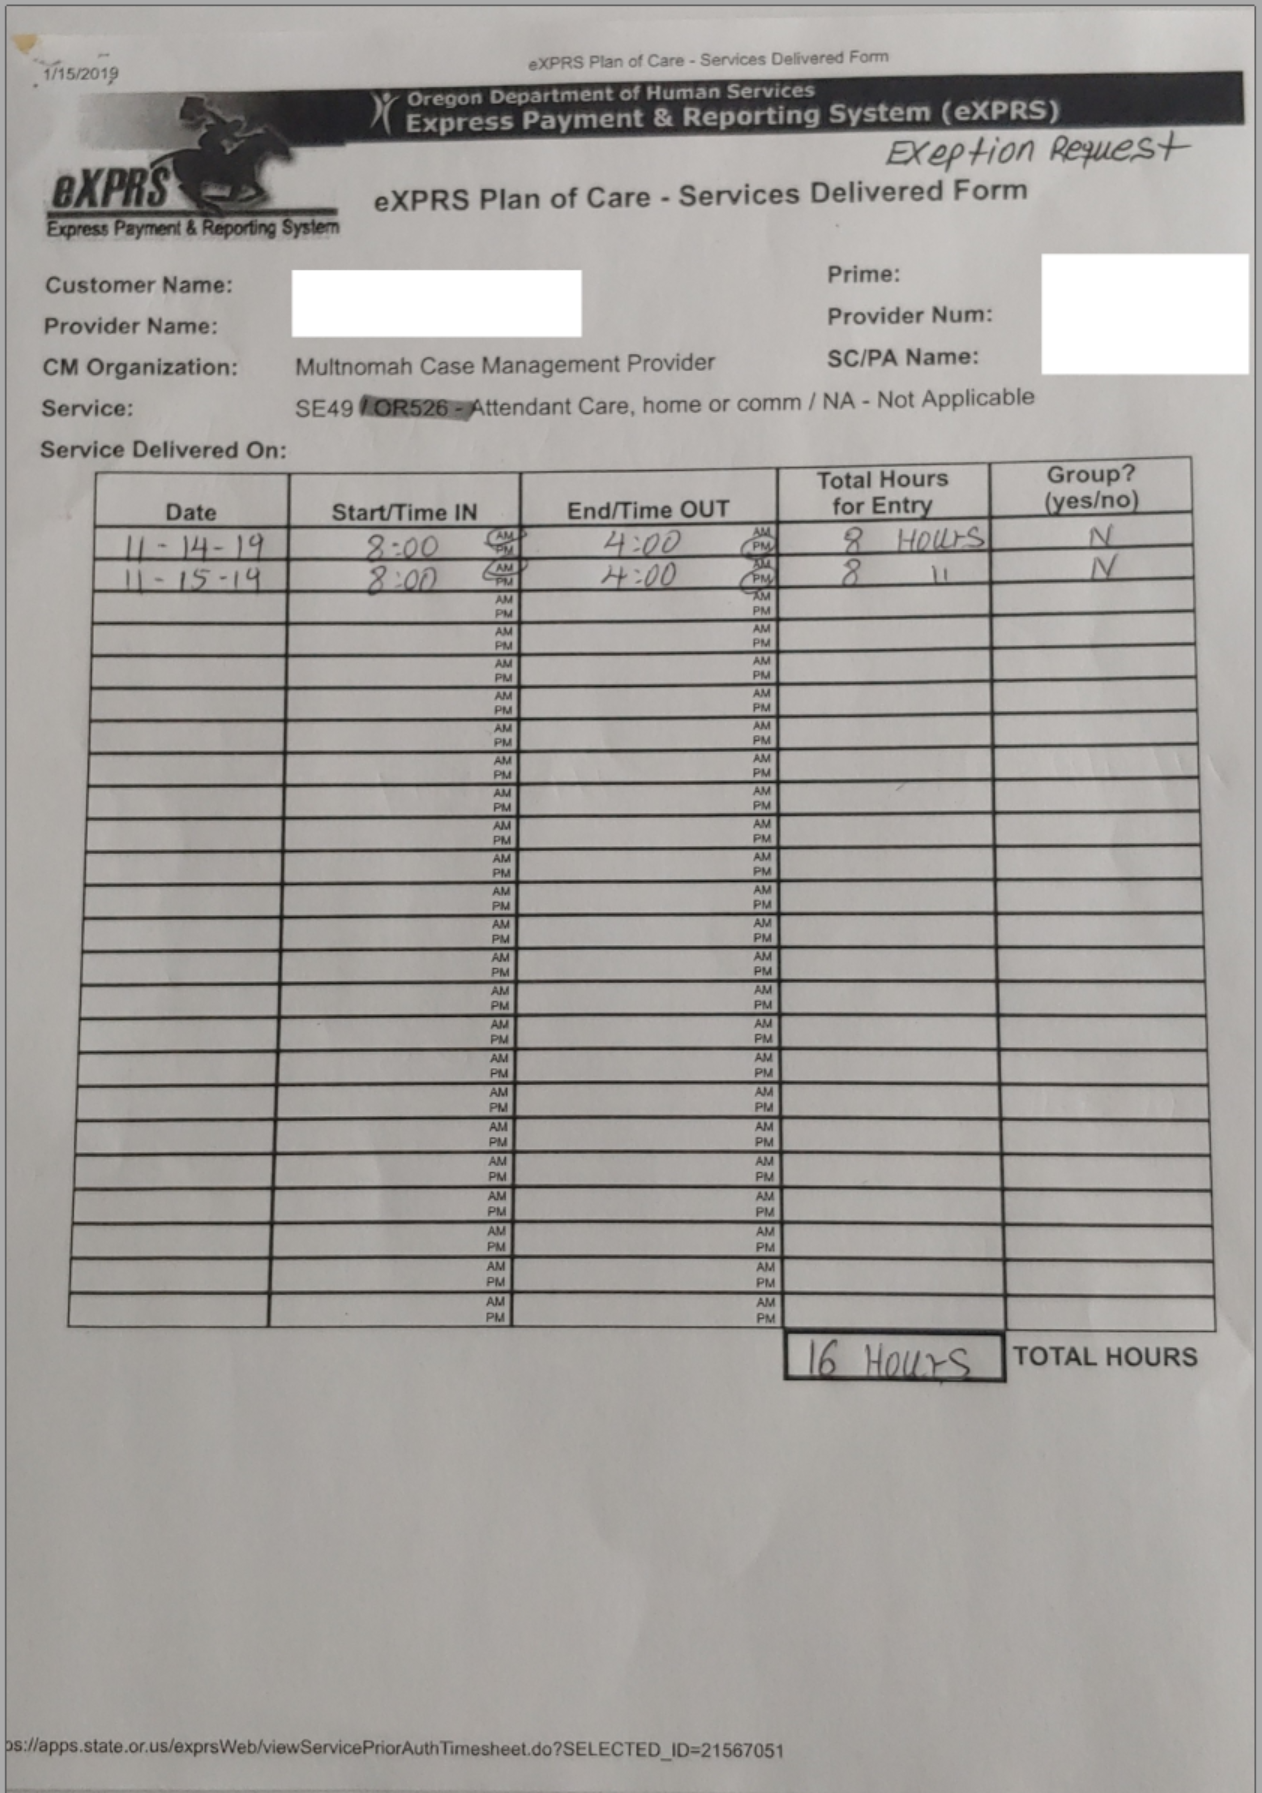 1/15/2019
eXPRS Plan of Care - Services Delivered Form
Oregon Department of Human Services
Express Payment & Reporting System (eXPRS)
Exeption Request
eXPRS
Express Payment & Reporting System
eXPRS Plan of Care - Services Delivered Form
Customer Name:
Prime:
Provider Name:
Provider Num:
CM Organization: Multnomah Case Management Provider
SC/PA Name:
Service: SE49 / OR526 - Attendant Care, home or comm / NA - Not Applicable
Service Delivered On:
Date Start/Time IN End/Time OUT Total Hours for Entry Group? (yes/no)
11-14-19 8:00 AM PM 4:00 AM PM 8 Hours N
11-15-19 8:00 AM PM 4:00 AM PM 8 11 N
AM PM AM PM
AM PM AM PM
AM PM AM PM
AM PM AM PM
AM PM AM PM
AM PM AM PM
AM PM AM PM
AM PM AM PM
AM PM AM PM
AM PM AM PM
AM PM AM PM
AM PM AM PM
AM PM AM PM
AM PM AM PM
AM PM AM PM
AM PM AM PM
AM PM AM PM
AM PM AM PM
AM PM AM PM
AM PM AM PM
AM PM AM PM
AM PM AM PM
16 Hours TOTAL HOURS
ps://apps.state.or.us/exprsWeb/viewServicePriorAuthTimesheet.do?SELECTED_ID=21567051